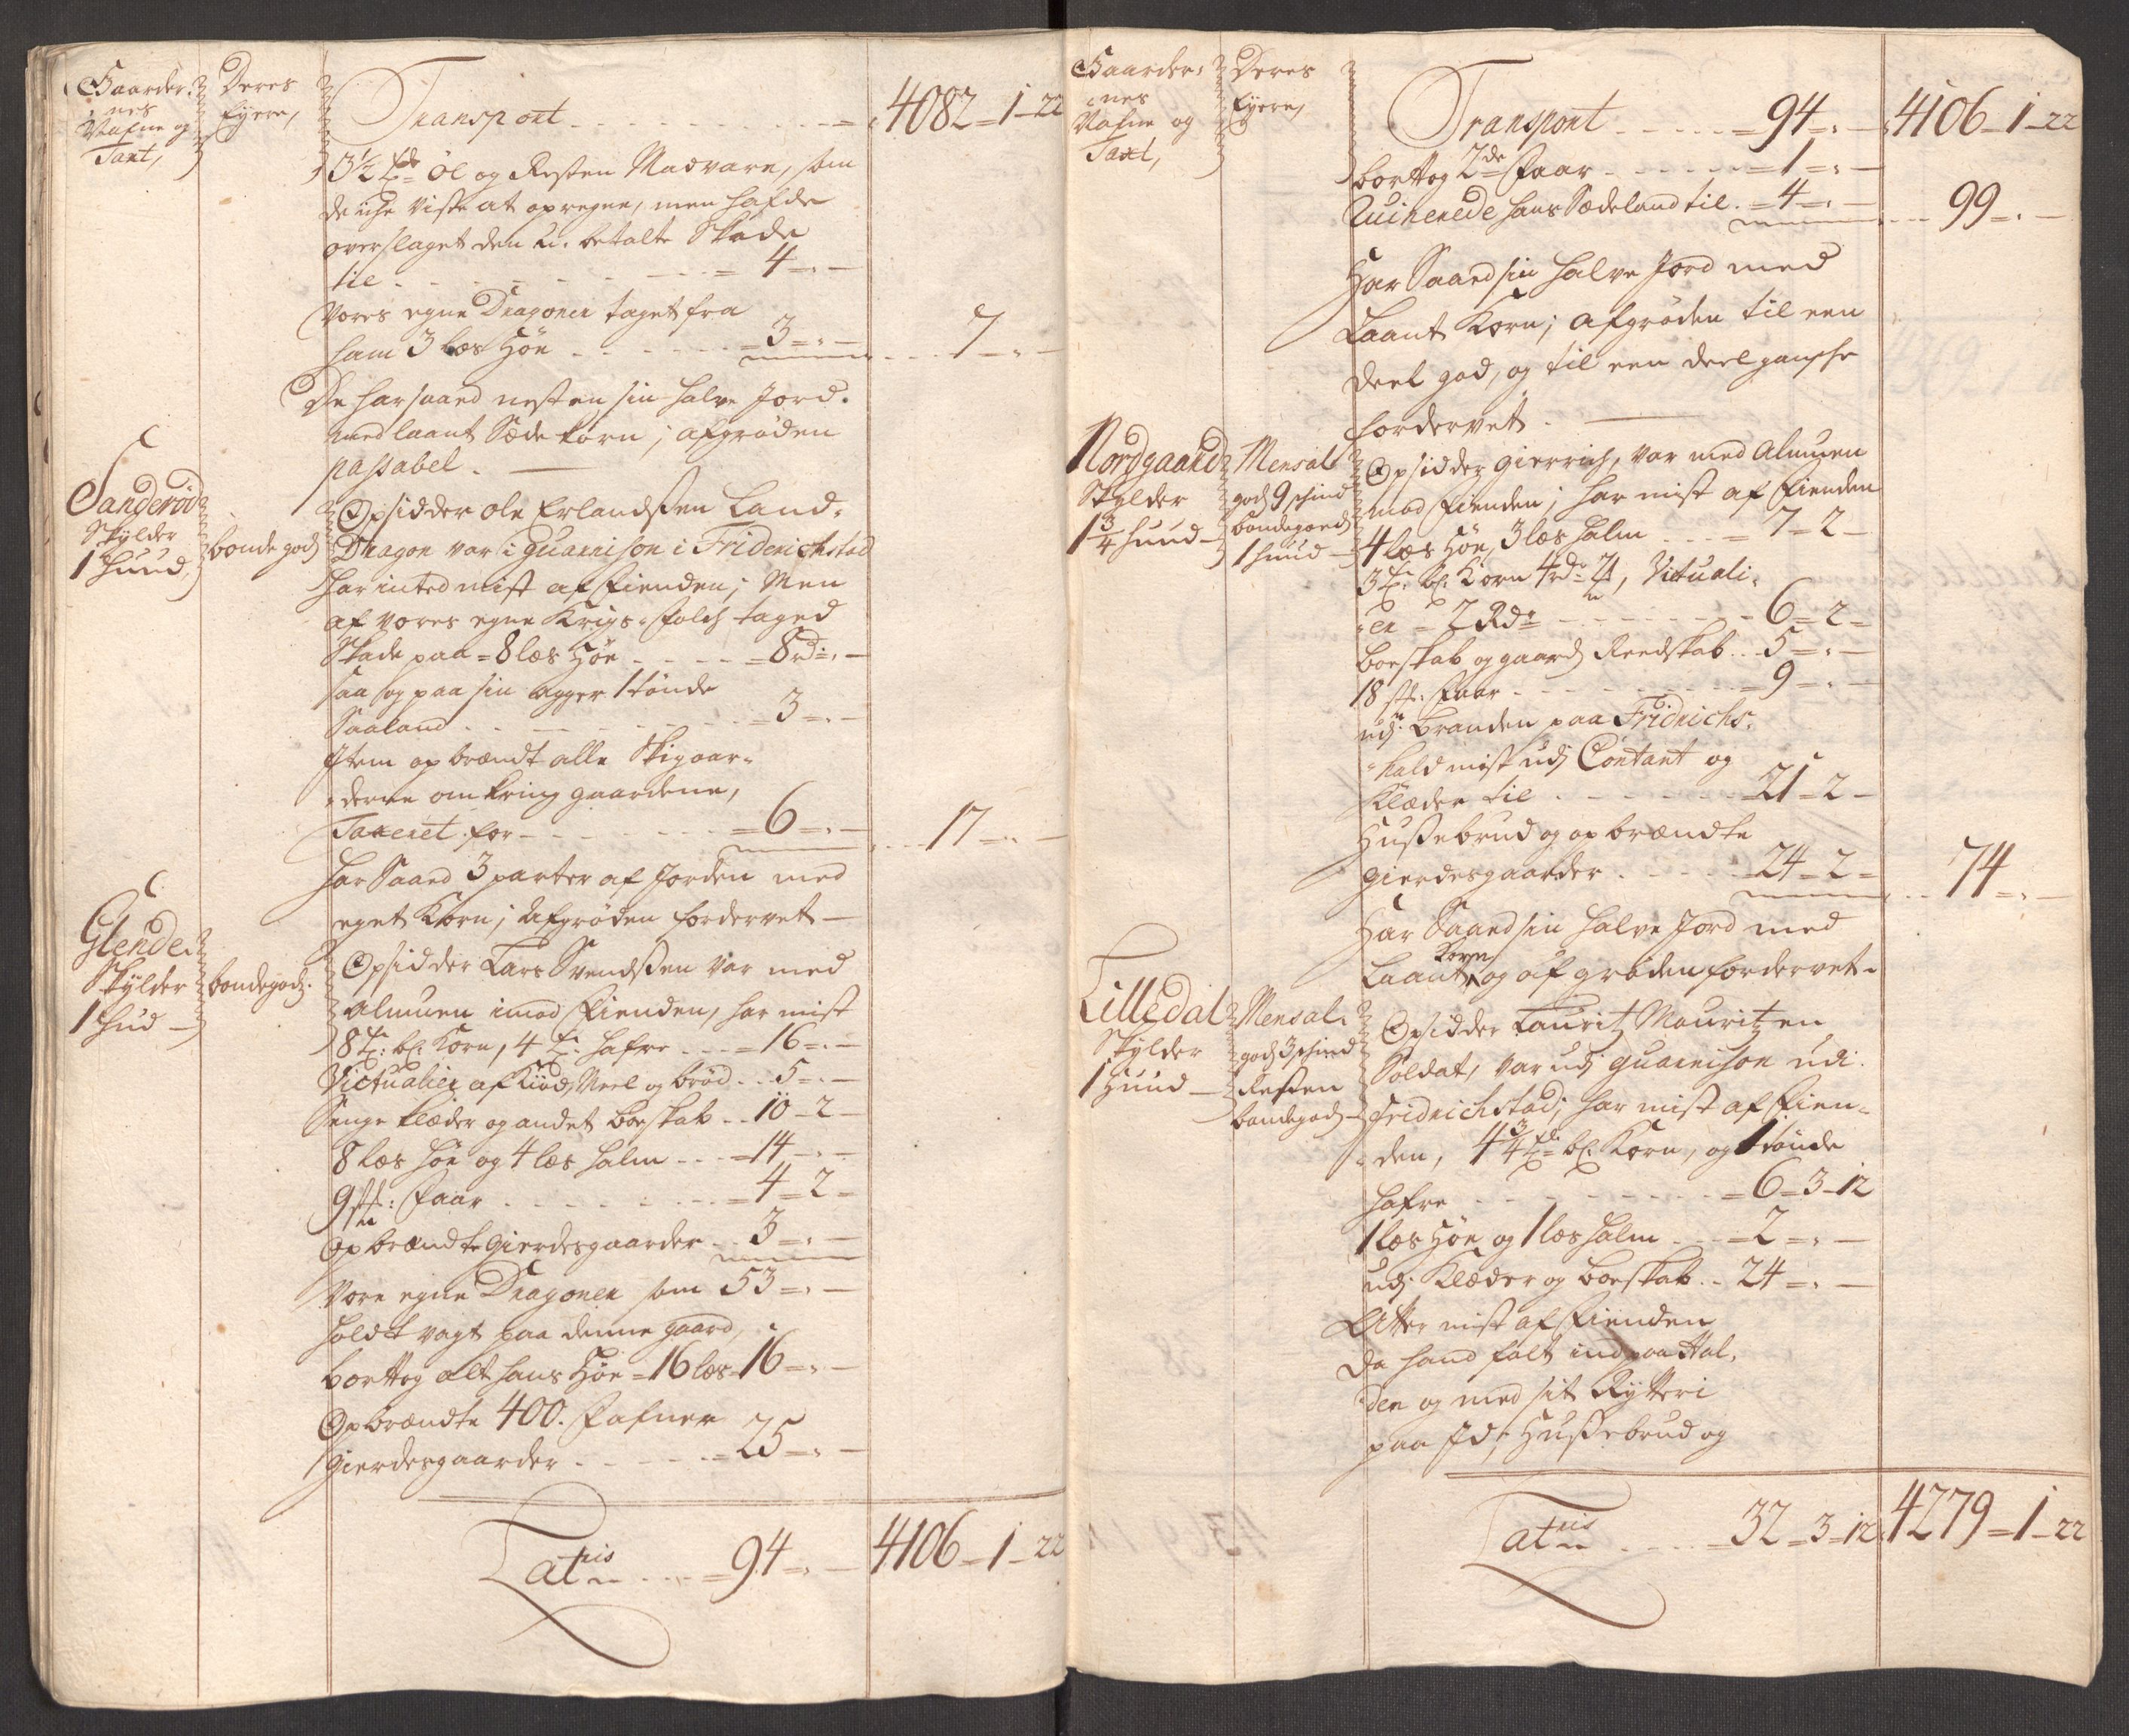 Gaarder-
nes
Nafne og
Taxt,
Deres
Eyere,
Transport 4082-1-22
3½ Tdr Öl og Resten Madvare, som
de iche viste at opregne, men hafde
overslaget den u-betalte Skade
til 4-"-
Vores egne Dragoner taget fra
ham 3 læs Höe 3-"- 7-"-
De har saaed nesten sin halve Jord
med laant Sædekorn; Afgröden
passabel.
Sanderöd
Skylder
1 huud,
bondegods
Opsidder Ole Erlandssen Land-
Dragon var i Guarnison i Friderichstad
har inted mist af Fienden; Men
af vores egne Krigs-Folch taged
Skade paa 8 læs Höe 8rd-"-
saa og paa sin agger 1 tönde
Saaland 3-"-
Item opbrændt alle Skigaar-
derne omkring gaardene,
Taxeret for 6-"- 17-"-
Har Saaed 3 parter af Jorden med
eget Korn; Afgröden fordervet
Glende.
Skylder
1 hud
bondegods.
Opsidder Lars Svendssen var med
Almuen imod Fienden, har mist
8 Tr: bl: Korn, 4 Tr: hafre 16-"-
Victualier af Kiöd, Meel og bröd 5-"-
Senge klæder og andet boeskab 10-2-
8 læs höe og 4 læs halm 14-"-
9 stk: Faar 4-2-
Opbrændte Gierdesgaarder 3-"-
Vore egne Dragoner som 53-"-
holdt vagt paa denne gaard,
borttog alt hans Höe 16 læs 16-"-
Opbrændte 400. Fafner
Gierdesgaarder 25-"-
Lateris 94-"- 4106-1-22
Gaarder-
nes
Nafne og
Taxt,
Deres
Eyere,
Transport 94-"- 4106-1-22
borttog 2de Faar 1-"-
Ruinerede hans Sædeland til 4-"- 99-"-
Har Saaed sin halve Jord med
Laant Korn; Afgröden til een
deel god, og til een deel gansche
fordervet.
Nordgaard
Skylder
1¾ huud
Mensal
gods 9 schind
bondegods
1 huud
Opsidder Gierrich, var med Almuen
mod Fienden; har mist af Fienden
4 læs Höe, 3 læs halm 7-2-
3 Tr: bl: Korn 4rdr 2, Victuali-
er 2 Rdr 6-2-
boeskab og gaards Reedskab 5-"-
18 stk: Faar 9-"-
udj Branden paa Fridrichs-
hald mist udj Contant og
Klæder til 21-2-
Hussebrud og opbrændte
gierdesgaarder 24-2- 74-"-
Har Saaed sin halve Jord med
Laant Korn og afgröden fordervet.
Lilledal
Skylder
1 Huud
Mensal
gods 3 schind
Resten
bondegods
Opsidder Lauritz Mauritzen
Soldat, var udj Guarnison udi
Fridrichstad; har mist af Fien-
den, 4¾ Tr: bl: Korn, og 1 tönde
hafre 6-3-12
1 læs Höe og 1 læs halm 2-"-
udj Klæder og boeskab 24-"-
Atter mist af Fienden
da hand falt ind paa Hal-
den og med sit Rytteri
paa Id; Hussebrud og
Lateris 32-3-12 4279-1-22